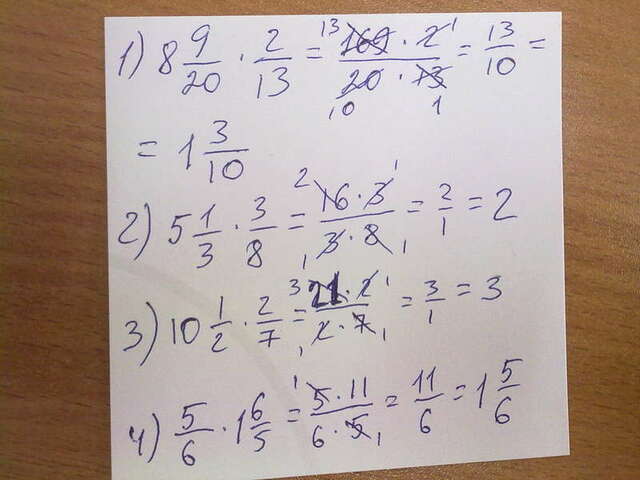 1) 8 9/20 · 2/13 = 169 · 2 / 20 · 13 = 13/10 =
= 1 3/10
2) 5 1/3 · 3/8 = 16 · 3 / 3 · 8 = 2/1 = 2
3) 10 1/2 · 2/7 = 21 · 2 / 2 · 7 = 3/1 = 3
4) 5/6 · 1 6/5 = 5 · 11 / 6 · 5 = 11/6 = 1 5/6